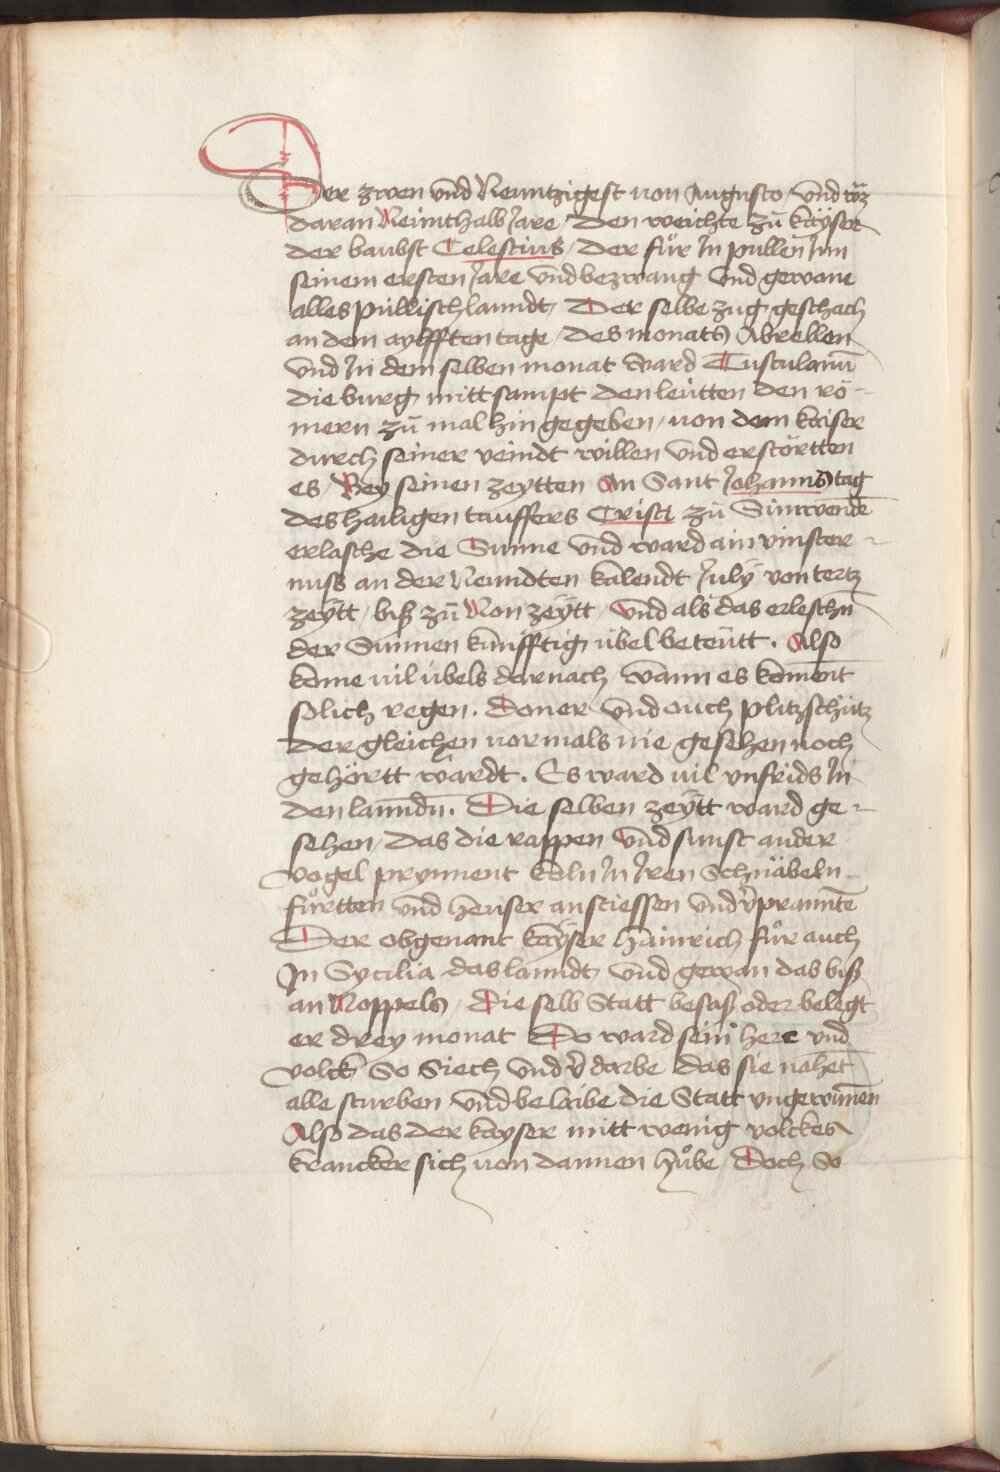 Der zwen vnd Neuntzigest von Augusto / vnd wz
daran Neunthalb Jare / den weichte zů kayser
der baubst Celestius / der für Jn pullen Jnn
seinem ersten Jare vnd bezwang vnd gewane
alles pullisch lanndt / Der selbe zug geschach
an dem aylfften tage / des monats Abrellen
vnd Jn dem selben monat ward Tusculanū
die burg mitt sampt den leütten den rö-
mern zů mal hin gegeben / von dem kaiser
durch seiner veindt willen vnd erstörtten
es / Bey seinen zeytten An Sant Johanns tag
des hailigen tauffers Cristi zů Sunwende
erlasche die Sunne vnd ward ain vinster-
nuss an der Neundten kalendt July von tertz
zeÿtt / biß zů Non zeÿtt / vnd als das erleschn̄
der Sunnen kunfftig übel beteütt . Also
kome vil übels darnach / wann es koment
solich regen . doner vnd ouch plitzschütz
der gleichen vormals nie gesehen noch
gehörtt wardt . Es ward vil vnfrids Jn
den lanndn̄ . Die selben zeÿtt ward ge-
sehen / das die rappen vnd sunst ander
vogel prynnent koln Jn Jren Schnäbeln
fůrtten vnd heuser anstiessen vnd v̄prannte
Der obgenant kaÿser hainrich fůr auch
Jn Sycilia das lanndt vnd gewan das biß
an Noppels / die selb Statt besaß oder belegt
er drey monat Do ward sein here vnd
volck So Siech vnd v̄darbe das sie nahet
alle sturben vnd belaibe die Statt vngewunen
Also das der kayser mitt wenig volckes
krancker sich von dannen hůbe / Doch so